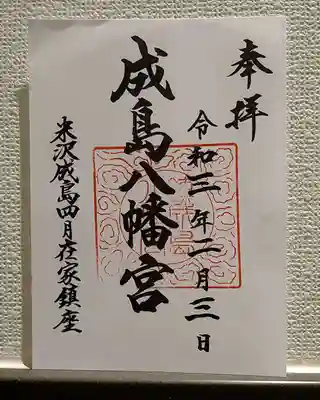 奉拝
令和三年二月三日
成島八幡宮
米沢成島四月在家鎮座